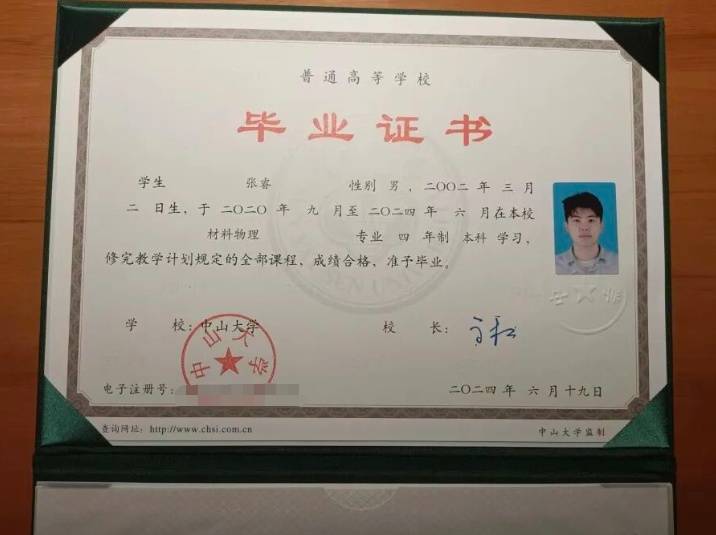 普通高等学校
毕业证书
学生 张睿 性别 男，二〇〇二 年 三 月
二 日生，于 二〇二〇 年 九 月至 二〇二四 年 六 月在本校
材料物理 专业 四 年制 本科 学习，
修完教学计划规定的全部课程，成绩合格，准予毕业。
学 校：中山大学 校 长：
中山大学
电子注册号： 二〇二四 年 六 月十九日
查询网址：http://www.chsi.com.cn 中山大学监制